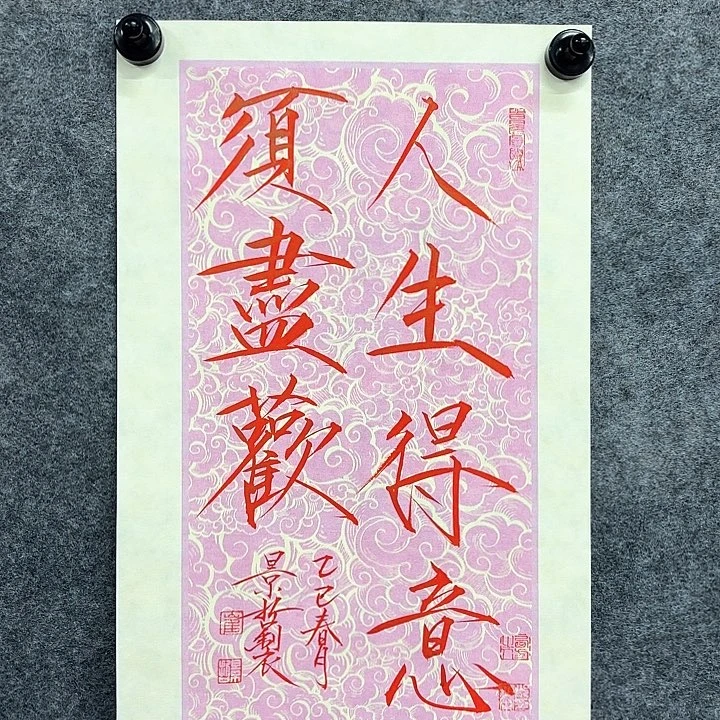 人生得意
須盡歡
乙巳春月